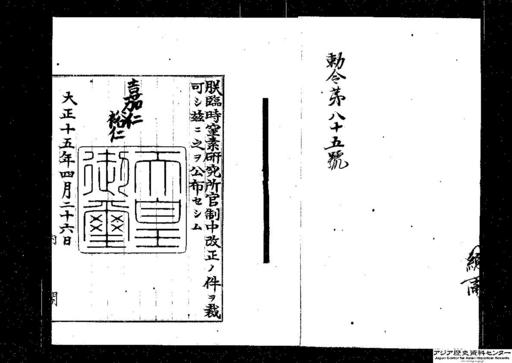 勅令第八十五號
朕臨時窒素研究所官制中改正ノ件ヲ裁
可シ玆ニ之ヲ公布セシム
嘉仁
裕仁
天皇
御璽
大正十五年四月二十六日
内
閣
アジア歴史資料センター
Japan Center for Asian Historical Records